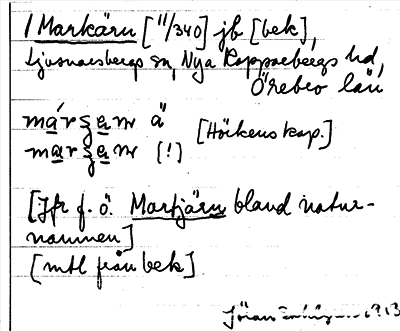 / Markärn [11/340] jb [bek],
Ljusnarsbergs sn, Nya Kopparbergs hd,
Örebro län
márʂean ä [Hörkens kap.]
marʂean (!)
[Jfr f. ö. Martjärn bland natur-
namnen]
[mtl från bek]
Göran